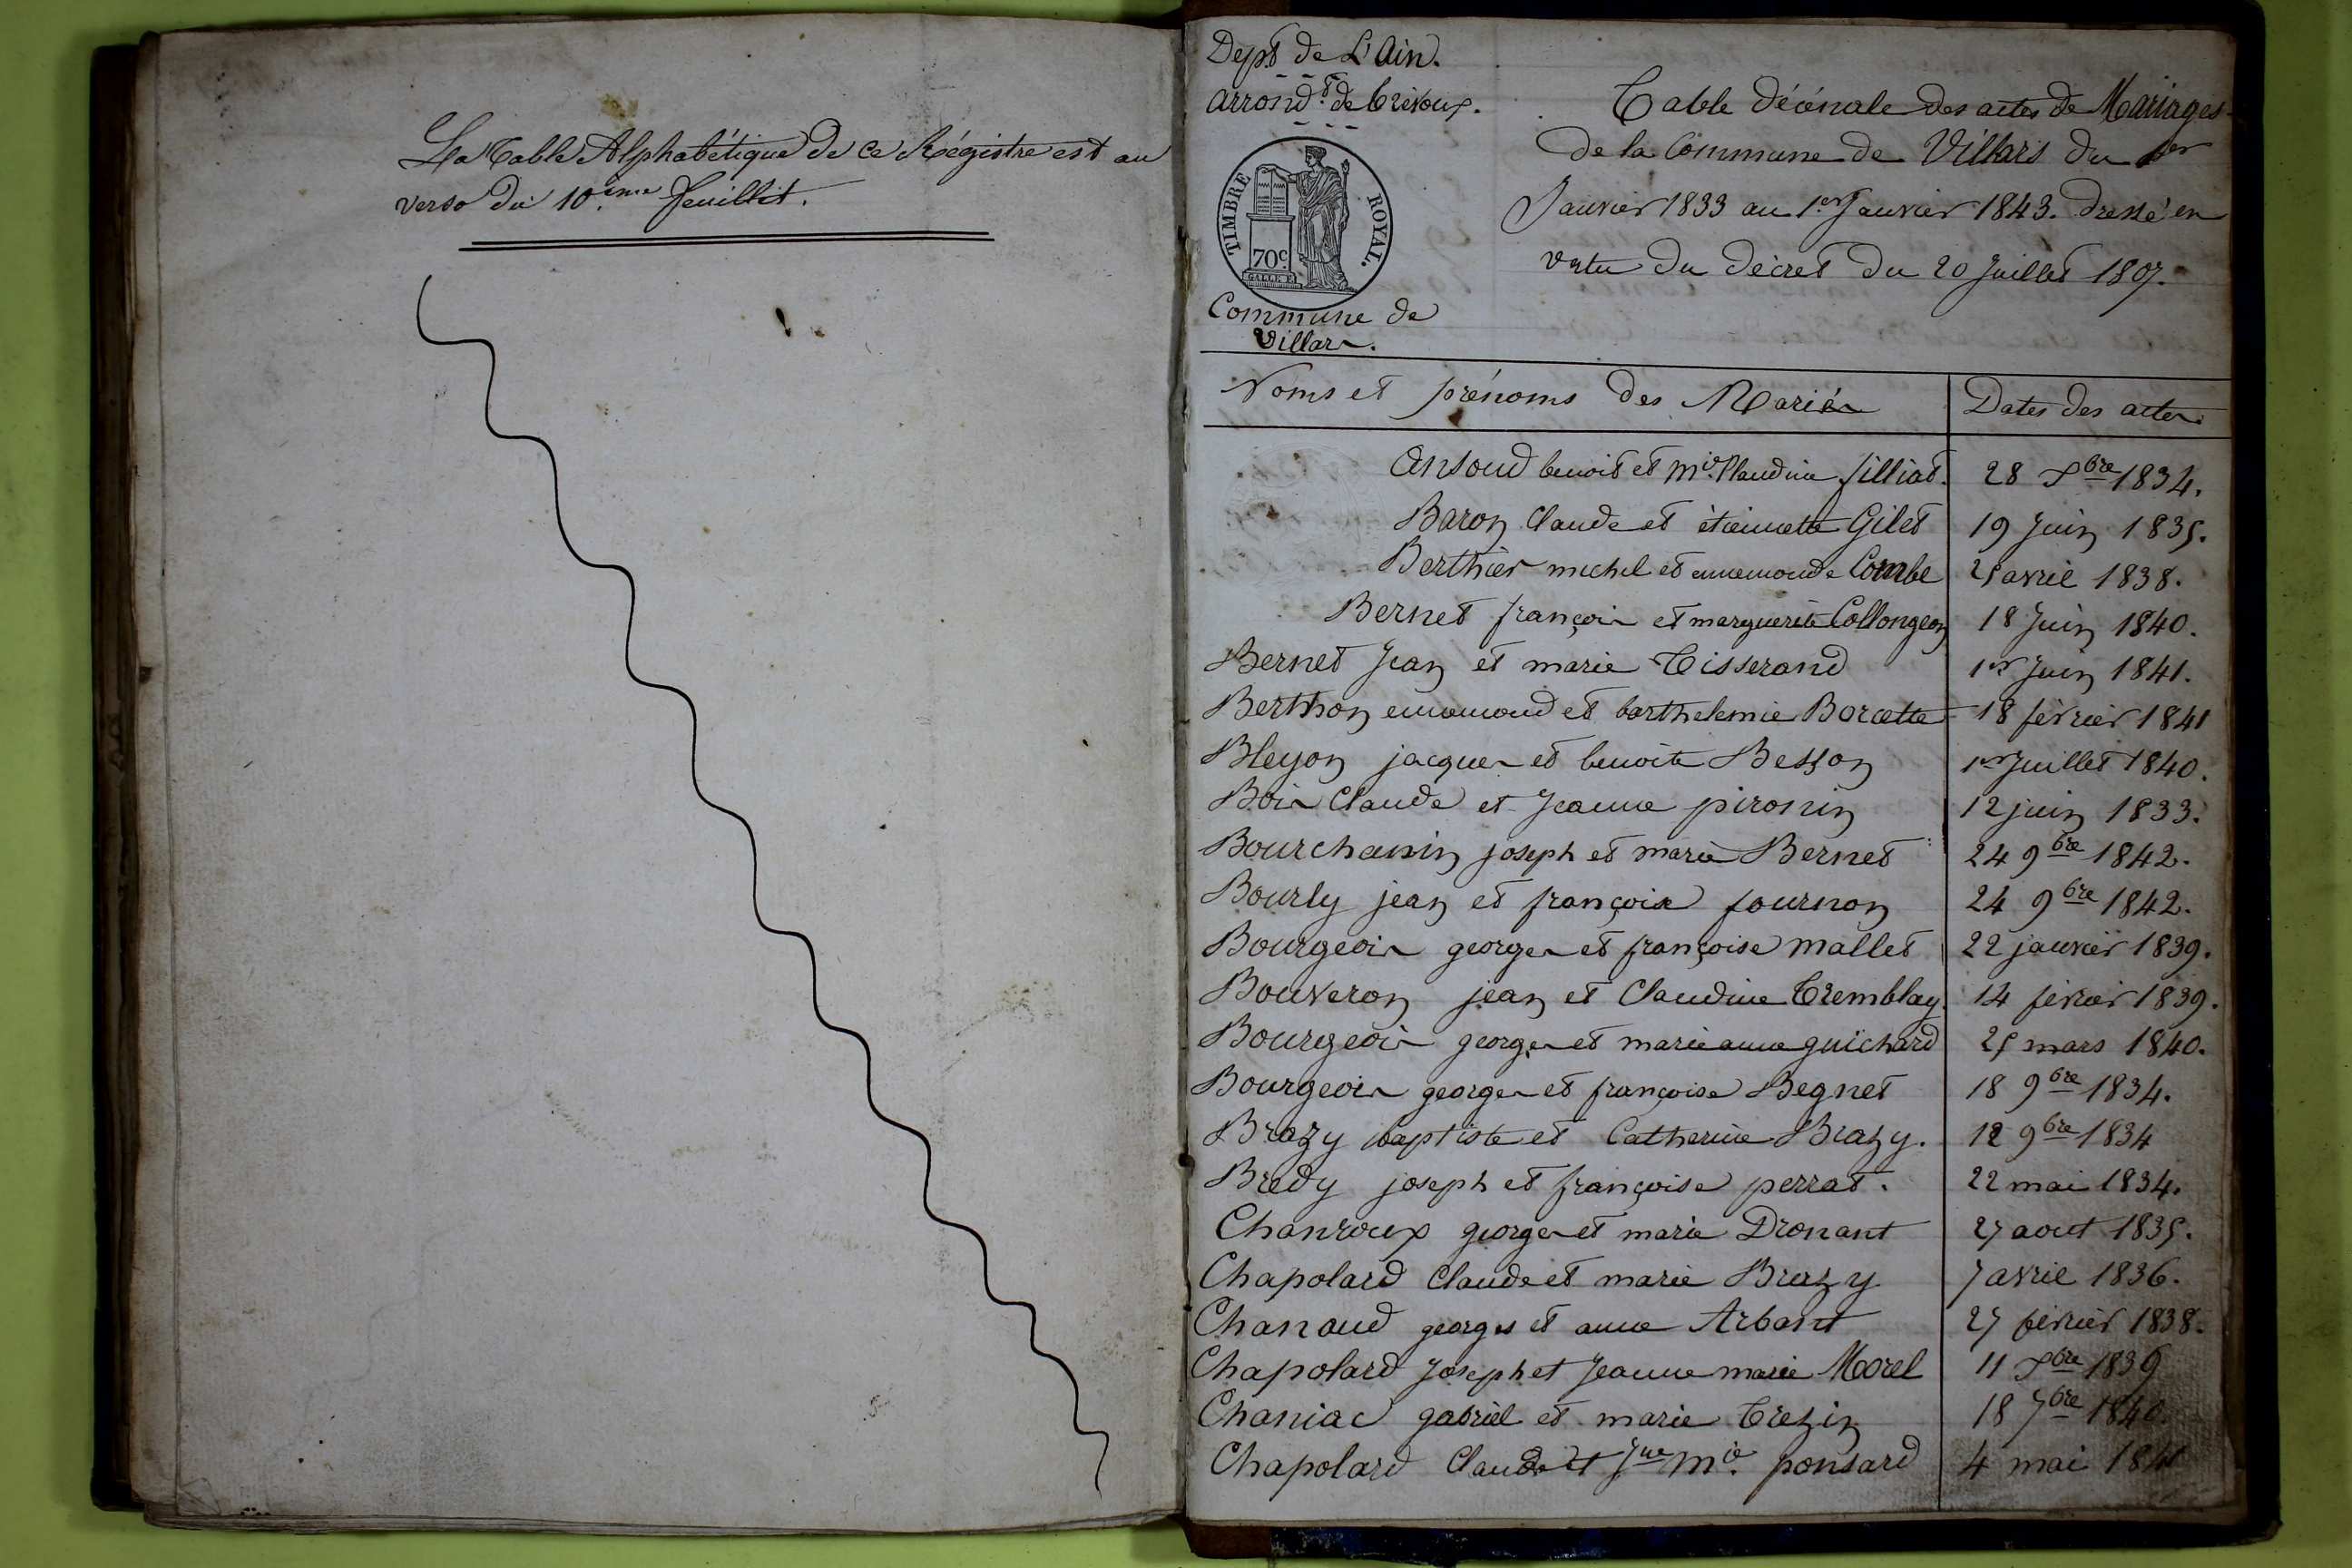 La Table Alphabétique de ce Régistre est au
verso du 10.eme feuillet.
Depst de L'Ain.
Arrondt. de Trévoux.
TIMBRE ROYAL.
70c.
Commune de
Villars.
Table décénale des actes de Mariages
de la Commune de Villars du 1er
Janvier 1833 au 1.er Janvier 1843. dressé en
vertu du décret du 20 Juillet 1807.
Noms et prénoms des Mariés
Dates des actes.
Ansoud benoit et mie. Claudine filliat. 28 Xbre 1834.
Baron Claude et étiennette Gilet 19 Juin 1835.
Berthier michel et ennemonde Combe 25 avril 1838.
Bernet françois et marguerite Collongeon 18 Juin 1840.
Bernet Jean et marie Tisserand 1er Juin 1841.
Berthon ennemond et barthelemie Borcette 18 février 1841
Bleyon jacques et benoite Besson 1er Juillet 1840.
Bois Claude et Jeanne pironin 12 juin 1833.
Bourchanin joseph et marie Bernet 24 9bre 1842.
Bourly jean et françoise fournon 24 9bre 1842.
Bourgeois georges et françoise mallet 22 janvier 1839.
Bouveron jean et Claudine Tremblay. 14 février 1839.
Bourgeois georges et marie anne guichard 25 mars 1840.
Bourgeois georges et françoise Begnet 18 9bre 1834.
Brazy baptiste et Catherine Brazy. 12 9bre 1834
Bredy joseph et françoise perrat. 22 mai 1834.
Chanroux georges et marie Dronant 27 aout 1835.
Chapolard Claude et marie Brazy 7 avril 1836.
Chanaud georges et anne Arbant 27 février 1838.
Chapolard Joseph et Jeanne marie Morel 11 Xbre 1839
Chaniac gabriel et marie Trezin 18 7bre 1840.
Chapolard Claude et Jne mie. ponsard 4 mai 1841